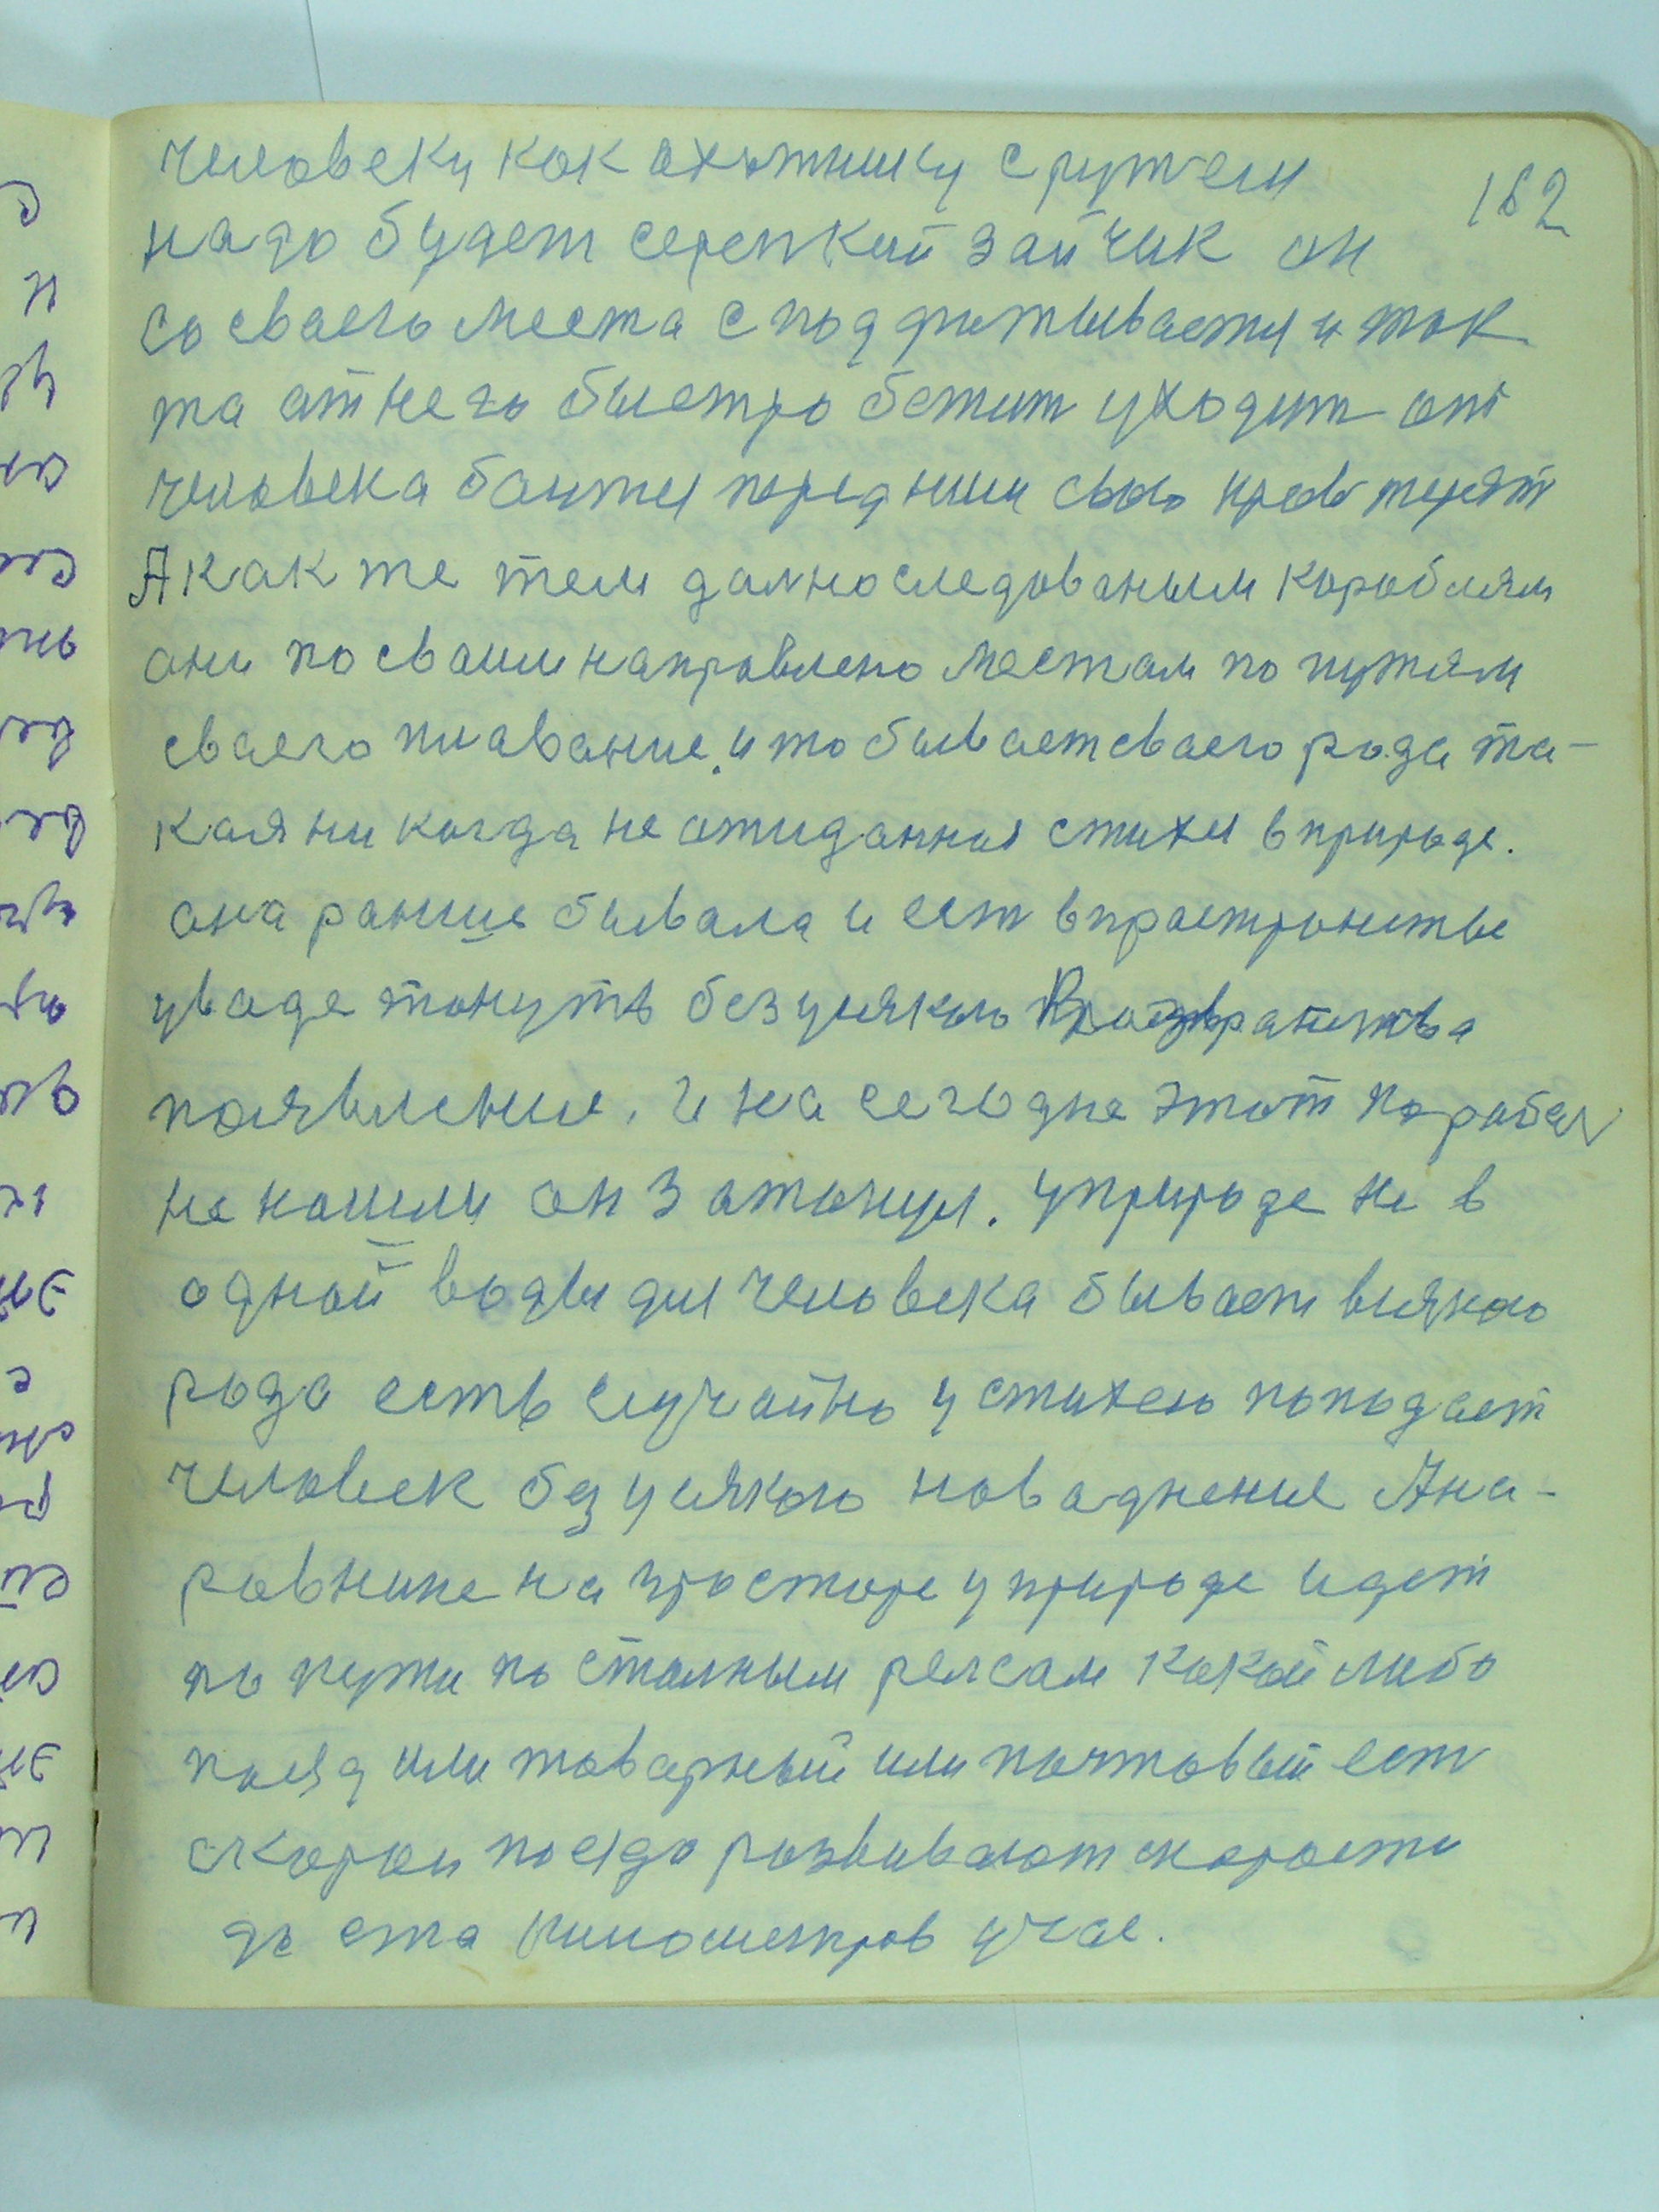 162
человеку как охотнику с ружем
надо будет серенкий зайчик он
со сваего места с под
та атнего быстро бежит уходит от
человека баитья передним свою кровь терят
А как же тем далноследованым кораблям
они по сваим направлено местам по путям
сваего плавание. и то бывает сваего рода та-
кая ни когда не ожиданная стихия в природе.
она раньше бывала и ест в прастранстве
уваде тонуть без усякого
появление. и на сегодне этот карабль
не нашли он затонул. у природе не в
одной воды для человека бывает всякого
рода есть случайно у стихею попадает
человек без усякого наваднение А на-
равнине на просторе у природе идет
по пути по сталным релсам какой либо
поезд или товарный или почтовый ест
скорои поезда развивают скорости
до ста километров у час.